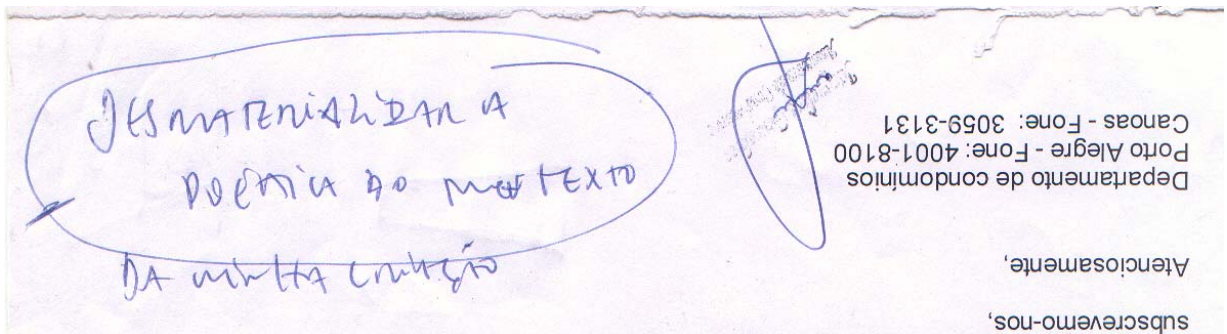 DESMATERIALIZAR A
POÉTICA DO TEXTO
DA MINHA
subscrevemo-nos,
Atenciosamente,
Departamento de condomínios
Porto Alegre - Fone: 4001-8100
Canoas - Fone: 3059-3131